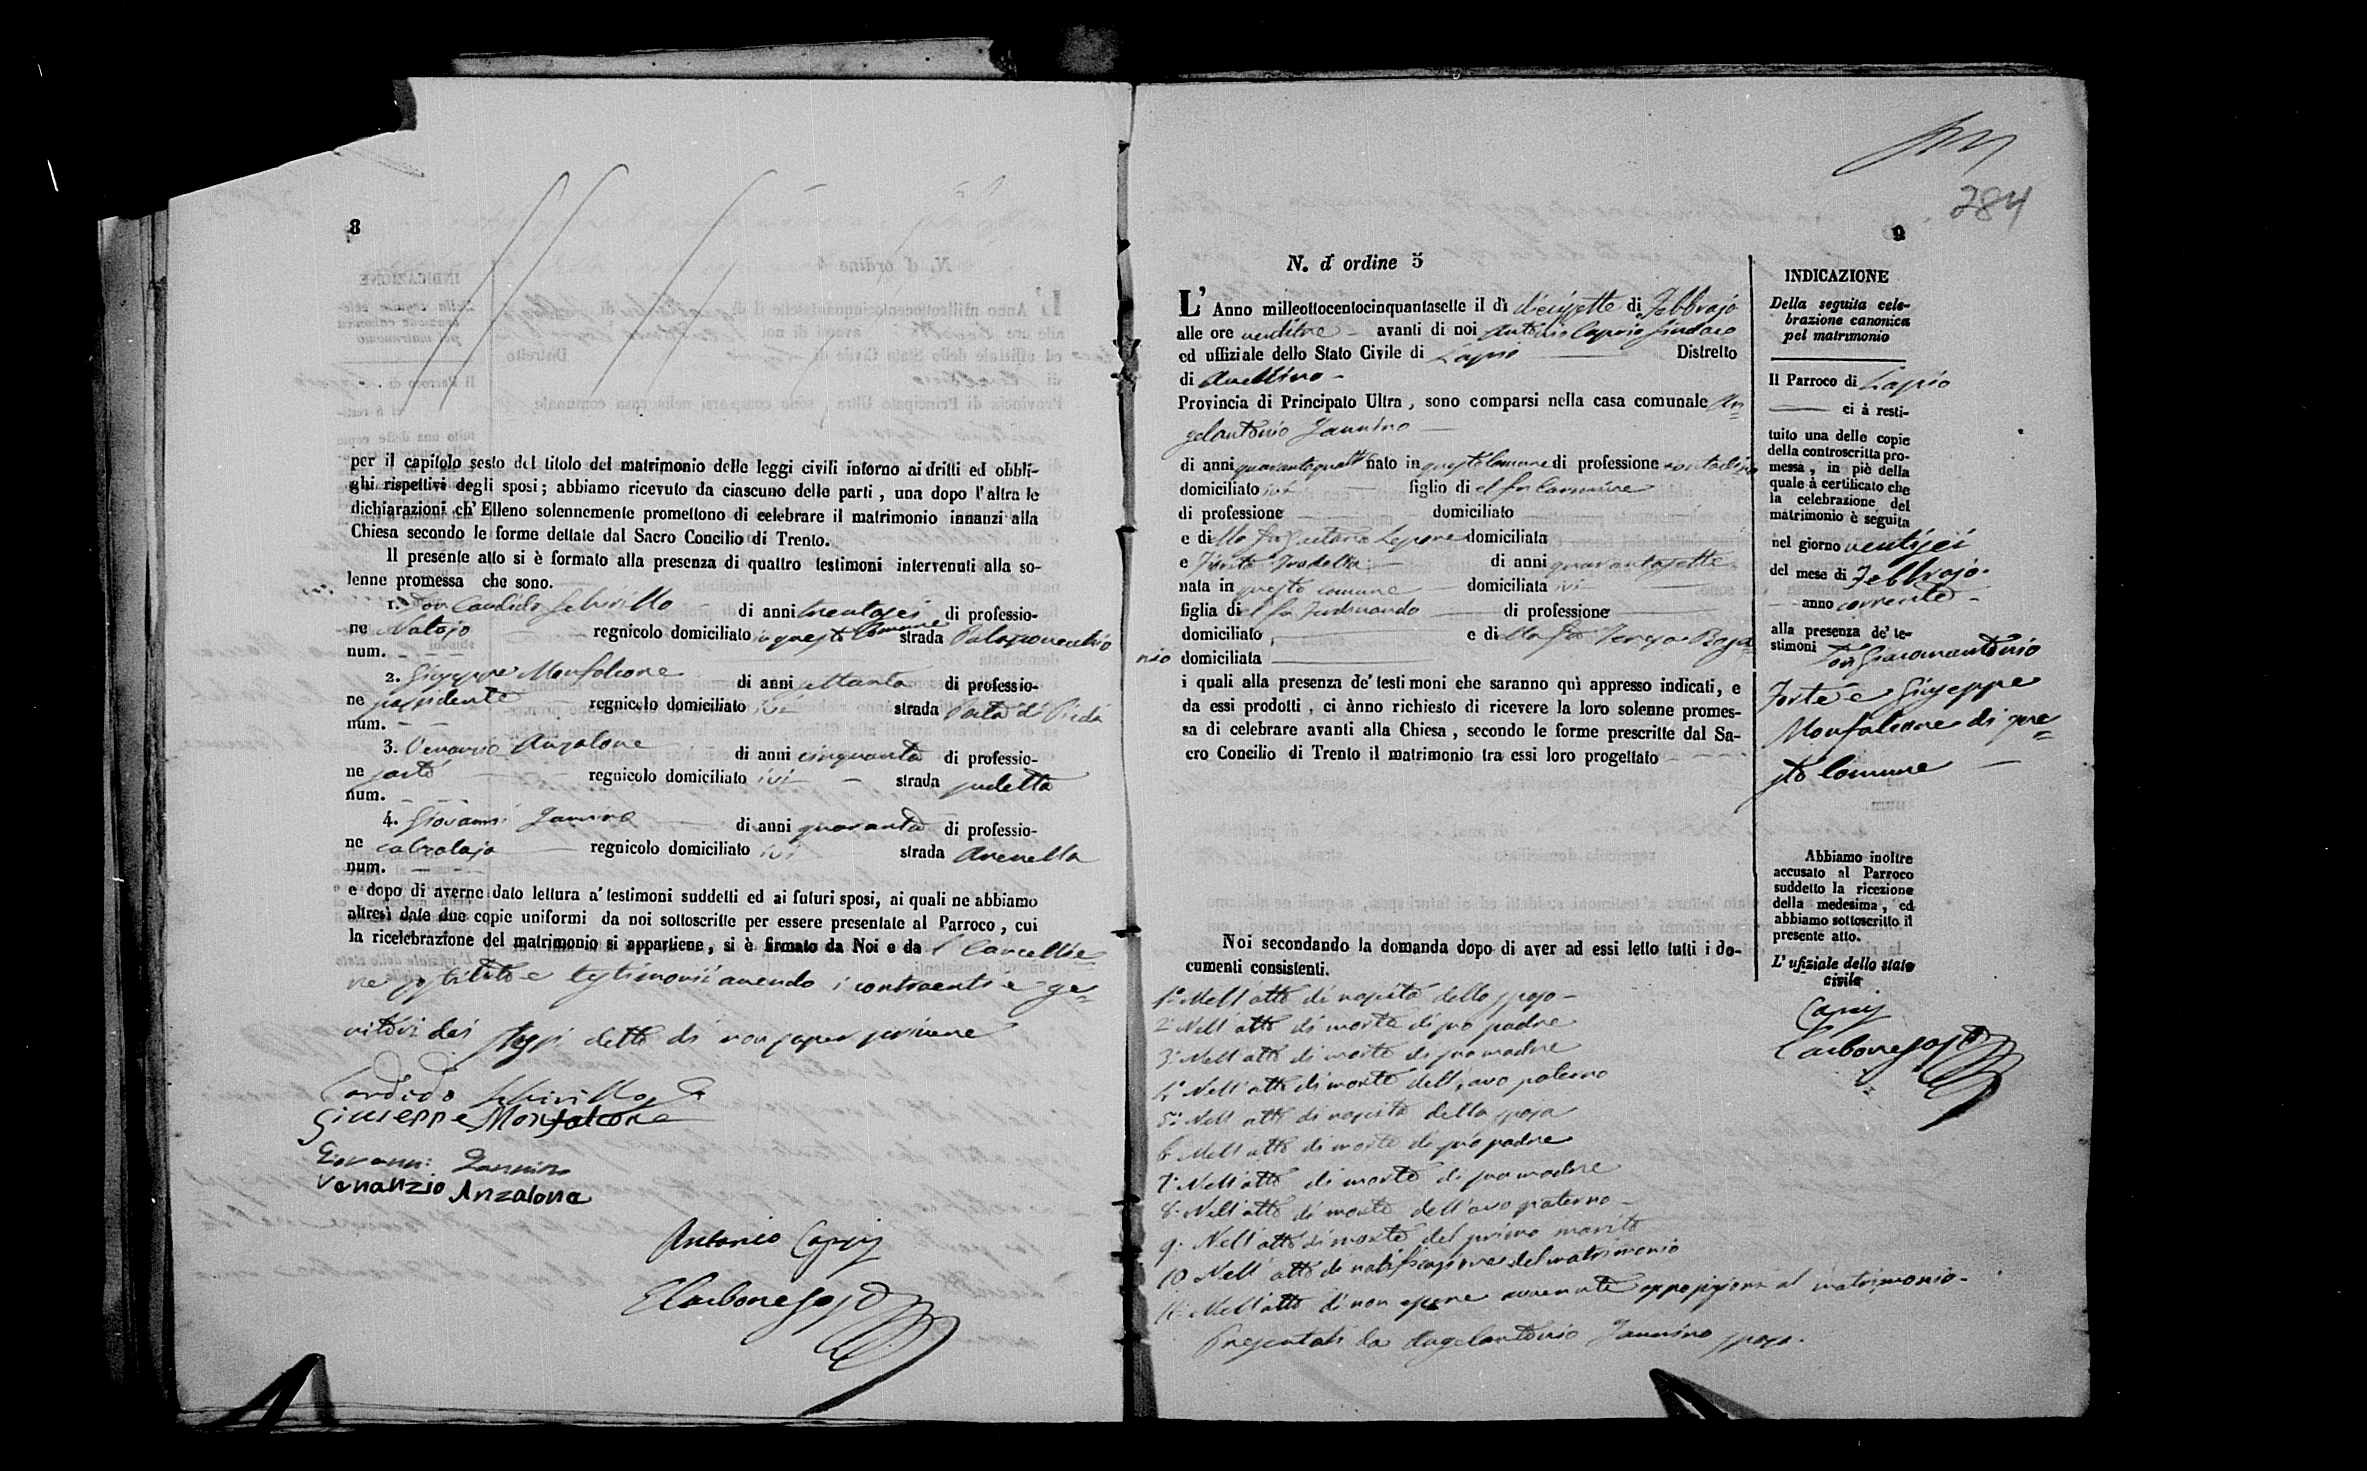 8
per il capitolo sesto del titolo del matrimonio delle leggi civili intorno ai dritti ed obbli-
ghi rispettivi degli sposi; abbiamo ricevuto da ciascuno delle parti, una dopo l'altra le
dichiarazioni ch'Elleno solennemente promettono di celebrare il matrimonio innanzi alla
Chiesa secondo le forme dettate dal Sacro Concilio di Trento.
Il presente atto si è formato alla presenza di quattro testimoni intervenuti alla so-
lenne promessa che sono.
1. Don Candido Schirillo di anni trentasei di professio-
ne Notajo regnicolo domiciliato in questo Comune strada
num.
2. Giuseppe Monfalcone di anni settanta di professio-
ne possidente regnicolo domiciliato ivi strada Porta di
num.
3. Venanzio Anzalone di anni cinquanta di professio-
ne sarto regnicolo domiciliato ivi strada
num.
4. Giovanni Iannino di anni quaranta di professio-
ne calzolajo regnicolo domiciliato ivi strada Arenella
num.
e dopo di averne dato lettura a' testimoni suddetti ed ai futuri sposi, ai quali ne abbiamo
altresì date due copie uniformi da noi sottoscritte per essere presentate al Parroco, cui
la ricelebrazione del matrimonio si appartiene, si è firmato da Noi e da l Cancellie=
re sostituto e testimonii avendo i contraenti e ge=
nitori dei stessi detto di non saper scrivere
Candido Schirillo
Giuseppe Monfalcone
Giovanni Iannino
Venanzio Anzalone
Antonio Caprio
Carbone sosto
284
9
N. d' ordine 5
L' Anno milleottocentocinquantasette il dì diecisette di Febbrajo
alle ore ventitre avanti di noi Antonio Caprio Sindaco
ed uffiziale dello Stato Civile di Lapio Distretto
di Avellino
Provincia di Principato Ultra, sono comparsi nella casa comunale An=
gelantonio Iannino
di anni quarantaquattro nato in questo Comune di professione contadino
domiciliato ivi figlio di el fu Carmine
di professione domiciliato
e di lla fu Gaetana Lepore domiciliata
e di anni quarantasette
nata in questo comune domiciliata ivi
figlia di el fu Ferdinando di professione
domiciliato e di lla fu Teresa
domiciliata
i quali alla presenza de' testimoni che saranno quì appresso indicati, e
da essi prodotti, ci ànno richiesto di ricevere la loro solenne promes-
sa di celebrare avanti alla Chiesa, secondo le forme prescritte dal Sa-
cro Concilio di Trento il matrimonio tra essi loro progettato
Noi secondando la domanda dopo di aver ad essi letto tutti i do-
cumenti consistenti.
1° Nell'atto di nascita dello sposo
2° Nell'atto di morte di suo padre
3° Nell'atto di morte di sua madre
4° Nell'atto di morte dell'avo paterno
5° Nell'atto di nascita della sposa
6° Nell'atto di morte di suo padre
7° Nell'atto di morte di sua madre
8° Nell'atto di morte dell'avo paterno
9° Nell'atto di morte del primo marito
10 Nell'atto di notificazione del matrimonio
11° Nell'atto di non essere avvenute opposizione al matrimonio
Presentati da Angelantonio Iannino sposo.
INDICAZIONE
Della seguita cele-
brazione canonica
pel matrimonio
Il Parroco di Lapio
ci à resti-
tuito una delle copie
della controscritta pro-
messa, in piè della
quale à certificato che
la celebrazione del
matrimonio è seguita
nel giorno ventisei
del mese di Febbrajo
anno corrente
alla presenza de' te-
stimoni Don Giacomantonio
Forte e Giuseppe
Monfalcone di que=
sto Comune
Abbiamo inoltre
accusato al Parroco
suddetto la ricezione
della medesima, ed
abbiamo sottoscritto il
presente atto.
L' ufiziale dello stato
civile
Caprio
Carbone sosto